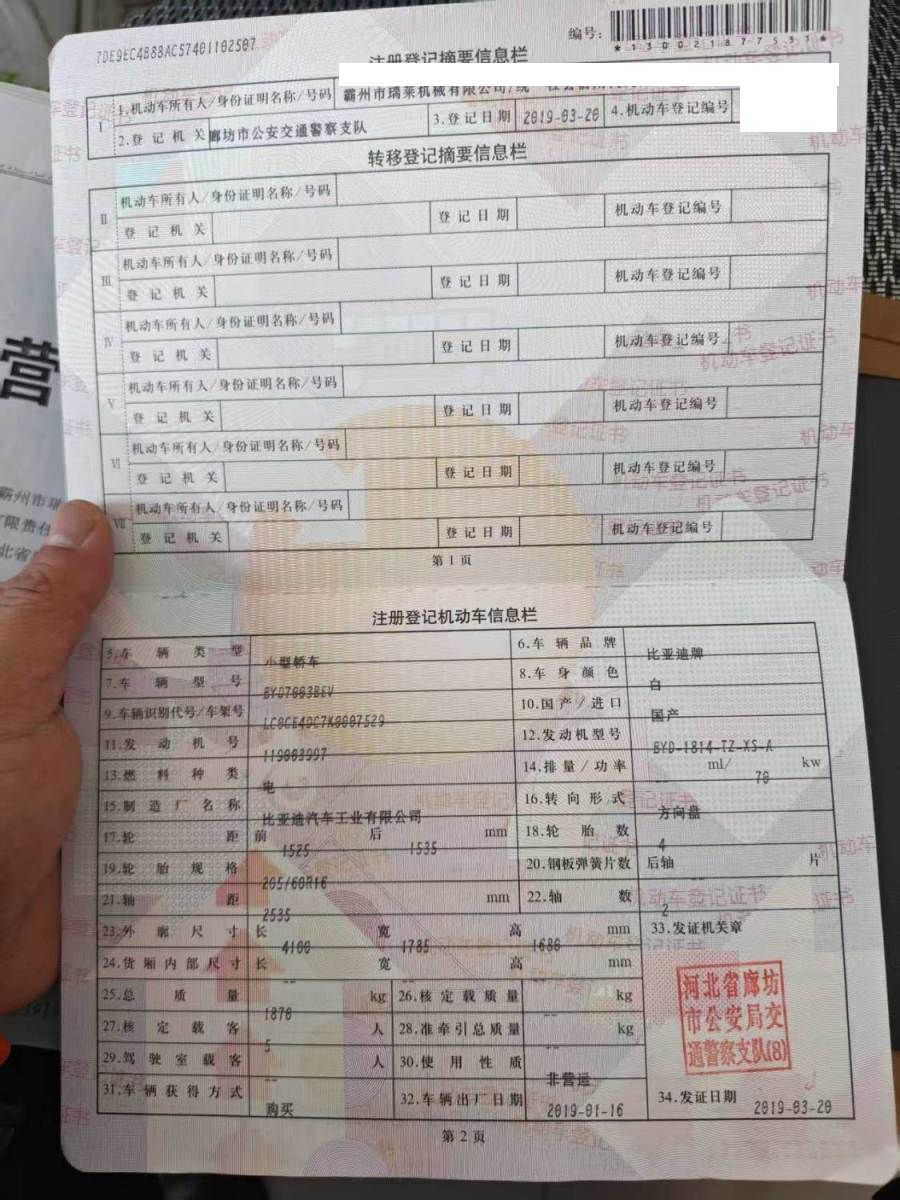 7DE9EC4B8BAC57401102507
编号:
*130021877531*
注册登记摘要信息栏
I
1.机动车所有人/身份证明名称/号码 霸州市瑞莱机械有限公司/统一社会信用代
2.登记机关 廊坊市公安交通警察支队 3.登记日期 2019-03-20 4.机动车登记编号
转移登记摘要信息栏
II
机动车所有人/身份证明名称/号码
登记机关 登记日期 机动车登记编号
III
机动车所有人/身份证明名称/号码
登记机关 登记日期 机动车登记编号
IV
机动车所有人/身份证明名称/号码
登记机关 登记日期 机动车登记编号
V
机动车所有人/身份证明名称/号码
登记机关 登记日期 机动车登记编号
VI
机动车所有人/身份证明名称/号码
登记机关 登记日期 机动车登记编号
VII
机动车所有人/身份证明名称/号码
登记机关 登记日期 机动车登记编号
第1页
注册登记机动车信息栏
5.车辆类型 小型轿车 6.车辆品牌 比亚迪牌
7.车辆型号 BYD7003BEV 8.车身颜色 白
9.车辆识别代号/车架号 LC0CE4DC7K0007529 10.国产/进口 国产
11.发动机号 119003997 12.发动机型号 BYD-1814-TZ-XS-A
13.燃料种类 电 14.排量/功率 ml/ 70 kw
15.制造厂名称 比亚迪汽车工业有限公司 16.转向形式 方向盘
17.轮距 前 1525 后 1535 mm 18.轮胎数 4
19.轮胎规格 205/60R16 20.钢板弹簧片数 后轴 -- 片
21.轴距 2535 mm 22.轴数 2
23.外廓尺寸 长 4100 宽 1785 高 1680 mm 33.发证机关章
24.货厢内部尺寸 长 宽 高 mm
25.总质量 1870 kg 26.核定载质量 -- kg
27.核定载客 5 人 28.准牵引总质量 -- kg
29.驾驶室载客 -- 人 30.使用性质 非营运
31.车辆获得方式 购买 32.车辆出厂日期 2019-01-16 34.发证日期 2019-03-20
河北省廊坊
市公安局交
通警察支队(8)
第2页
营
霸州市瑞
限责任
北省
机动车登记证书